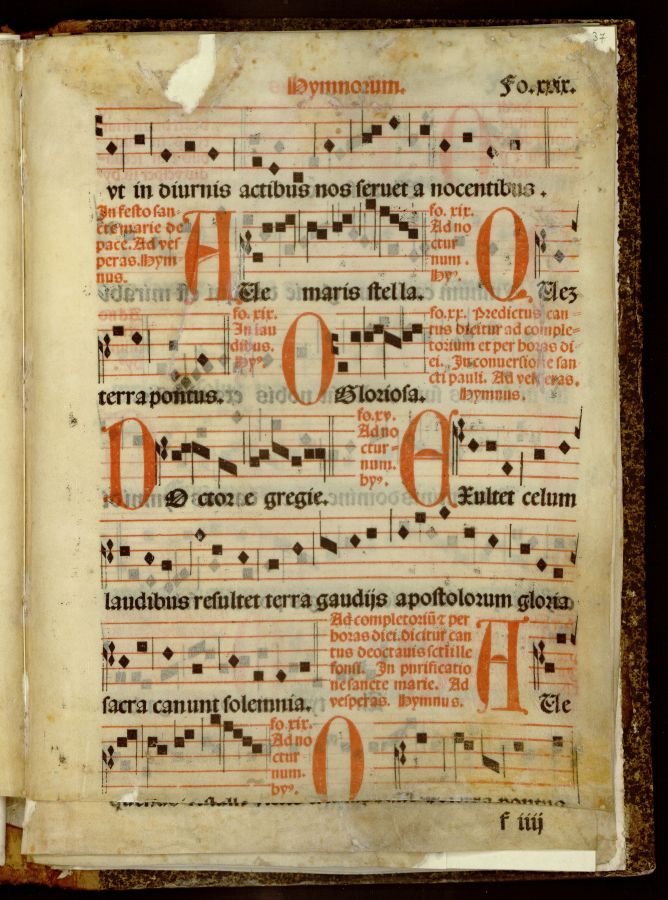 37
Hymnorum. Fo. xxix.
vt in diurnis actibus nos seruet a nocentibus .
In festo san-
cte marie de
pace. Ad ves
peras. Hym
nus.
A
Ue maris stella.
fo. xix.
Ad no
ctur
num .
hyꝰ.
Q
Uez
terra pontus.
fo. xix.
In lau
dibus.
hyꝰ
O
Gloriosa.
fo. xx. Predictus can
tus dicitur ad comple-
torium et per horas di
ei. In conuersione san
cti pauli. Ad vesperas.
Hymnus.
D
O ctor e gregie.
fo. xv.
Ad no
ctur-
num.
hyꝰ.
E
Xultet celum
laudibus resultet terra gaudijs apostolorum gloria
sacra canunt solemnia.
Ad completoriū ⁊ per
horas diei. dicitur can
tus de octauis scti ille
fonsi. In purificatio
ne sancte marie. Ad
vesperas. Hymnus.
A
Ue
fo. xix.
Ad no
ctur
num.
hyꝰ.
Q
terra pontus
f iiij